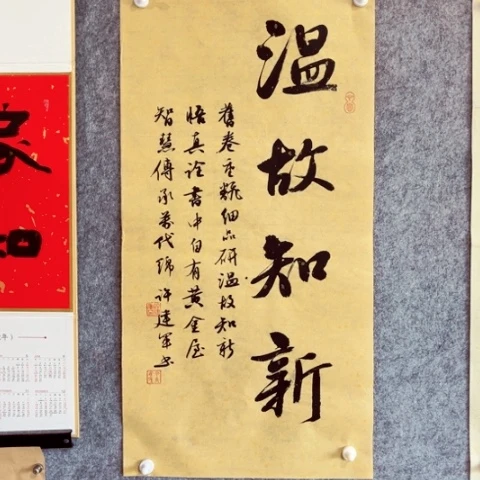 温故知新
舊卷重细品研温故知新
悟真诠書中自有黄金屋
智慧傳承萬代
许建军书